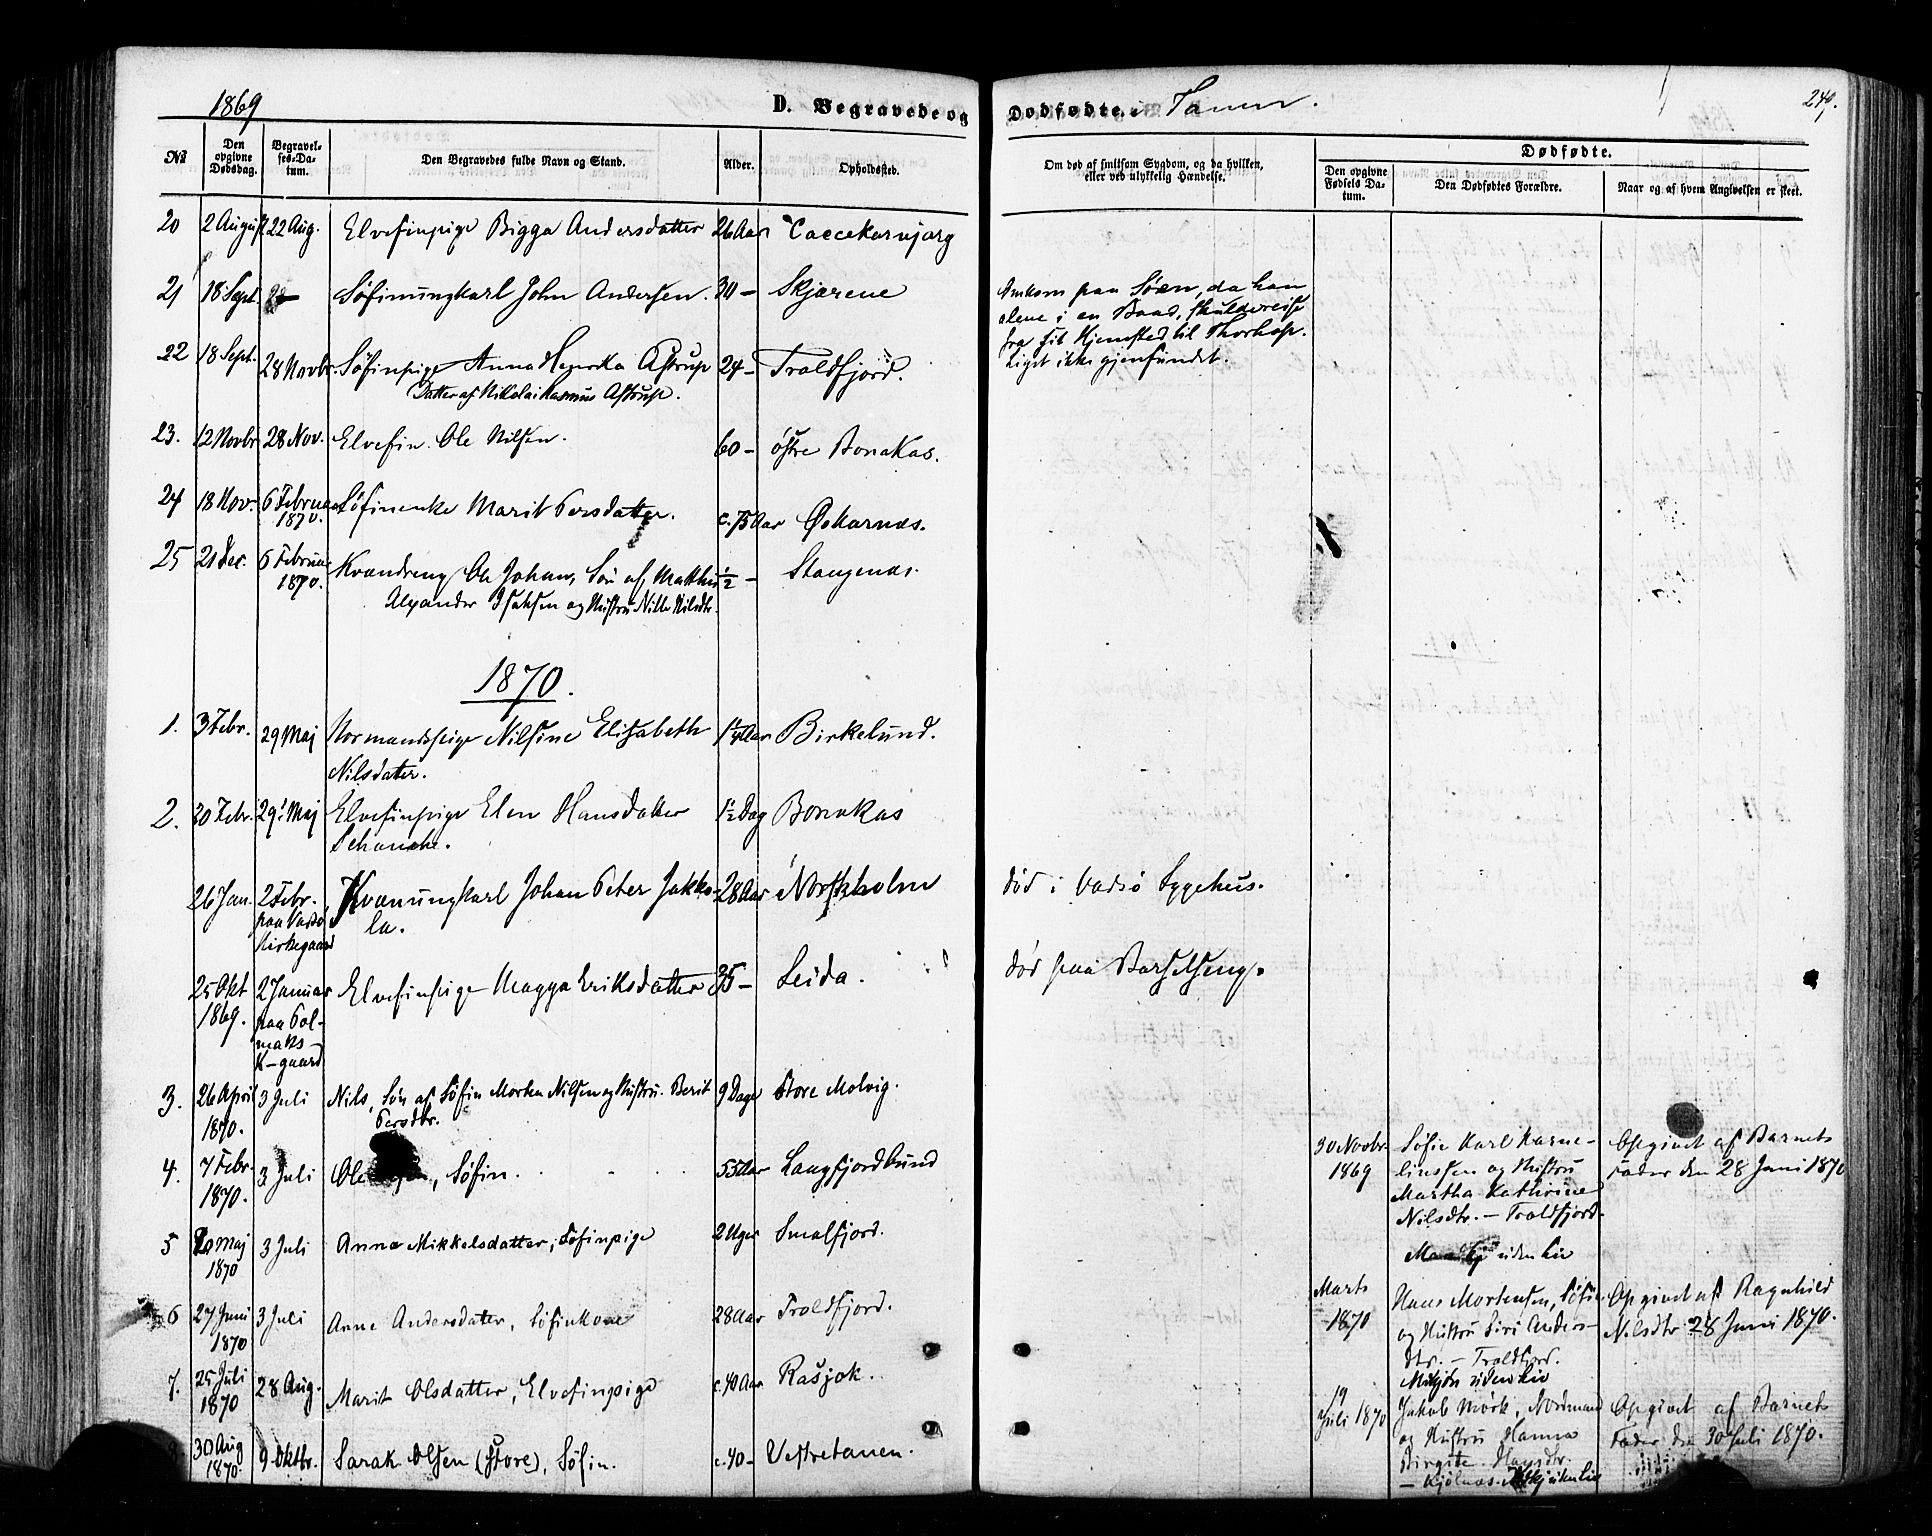 1869
D. Begravede og
Dødfødte. i Tanen.
249.
No
Den opgivne Dødsdag.
Begravelses-Datum.
Den Begravedes fulde Navn og Stand.
Alder.
Opholdssted.
Om død af smitsom Sygdom, og da hvilken, eller ved ulykkelig Hændelse.
Dødfødte.
Den opgivne Fødsels Datum.
Den Dødfødtes Forældre.
Naar og af hvem Angivelsen er skeet.
20 2 August 22 Aug. Elvefinpige Bigga Andersdatter 26 Aar Caccekarnjarg
21 18 Sept. — Søfinungkarl John Andersen. 30 — Skjærene
Omkom paa Søen, da han
alene i en Baad, skulde reise
fra sit Hjemsted til Thorhop.
Liget ikke gjenfundet.
22 18 Sept. 28 Novbr. Søfinpige Anna Henrika Astrup 24 — Troldfjord.
Datter af Nikolai Rasmus Astrup.
23. 12 Novbr 28 Nov. Elvefin Ole Nilsen. 60 — østre Bonakas.
24 18 Nov. 6 Februar 1870. Søfinenke Marit Persdatter. c. 75 Aar Øskarnæs.
25 21 Dec. 6 Februar 1870. Kvændreng Ole Johan, Søn af Matthis ½ — Stangenæs.
Alexander Isaksen og Hustru Nille Nilsdtr.
1870.
1. 3 Febr. 29 Maj Normandspige Nilsine Elisabeth 1¼ Aar Birkelund.
Nilsdatter.
2. 20 Febr. 29 Maj Elvefinpige Elen Hansdatter 1½ Dag Bonakas
Schanche.
26 Jan. 2 Febr. paa Vadsø Kirkegaard Kvænungkarl Johan Peter Jakko- 28 Aar Norskholm død i Vadsø Sygehus.
la.
25 Okt 1869. 2 Januar paa Polmaks K-gaard Elvefinpige Magga Eriksdatter 35 — Leida. død paa Barselseng.
3. 26 April 1870. 3 Juli Nils, Søn af Søfin Morten Nilsen og Hustru Berit 9 Dage Store Molvig.
Persdtr.
30 Novbr. 1869
Søfin Karl Karne-
liussen og Hustru
Martha Kathrine
Nilsdtr. — Troldfjord.
uden Liv
Opgivet af Barnets
Fader den 28 Juni 1870
4. 7 Febr. 1870. 3 Juli Ole, Søfin. 55 Aar Langfjordbund
5 Maj 1870 3 Juli Anna Mikkelsdatter, Søfinpige 2 Uger Smalfjord.
6 27 Juni 1870 3 Juli Anne Andersdatter, Søfinkone 28 Aar Troldfjord.
Marts 1870
Hans Mortensen, Søfin
og Hustru Siri Anders-
dtr. — Troldfjord.
uden Liv
Opgivet af Ragnhild
Nilsdtr 28 Juni 1870.
7. 25 Juli 1870 28 Aug. Marit Olsdatter, Elvefinpige c. 40 Aar Rasjok.
19 Juli 1870
Jakob Mørk, Nordmand
og Hustru Hanna
Birgite Hansdtr.
— Kjølnæs. uden Liv
Opgivet af Barnets
Fader den 30 Juli 1870.
8 30 Aug 1870. 9 Oktbr. Sarak Olsen (Store), Søfin. c. 40 — Vestretanen.